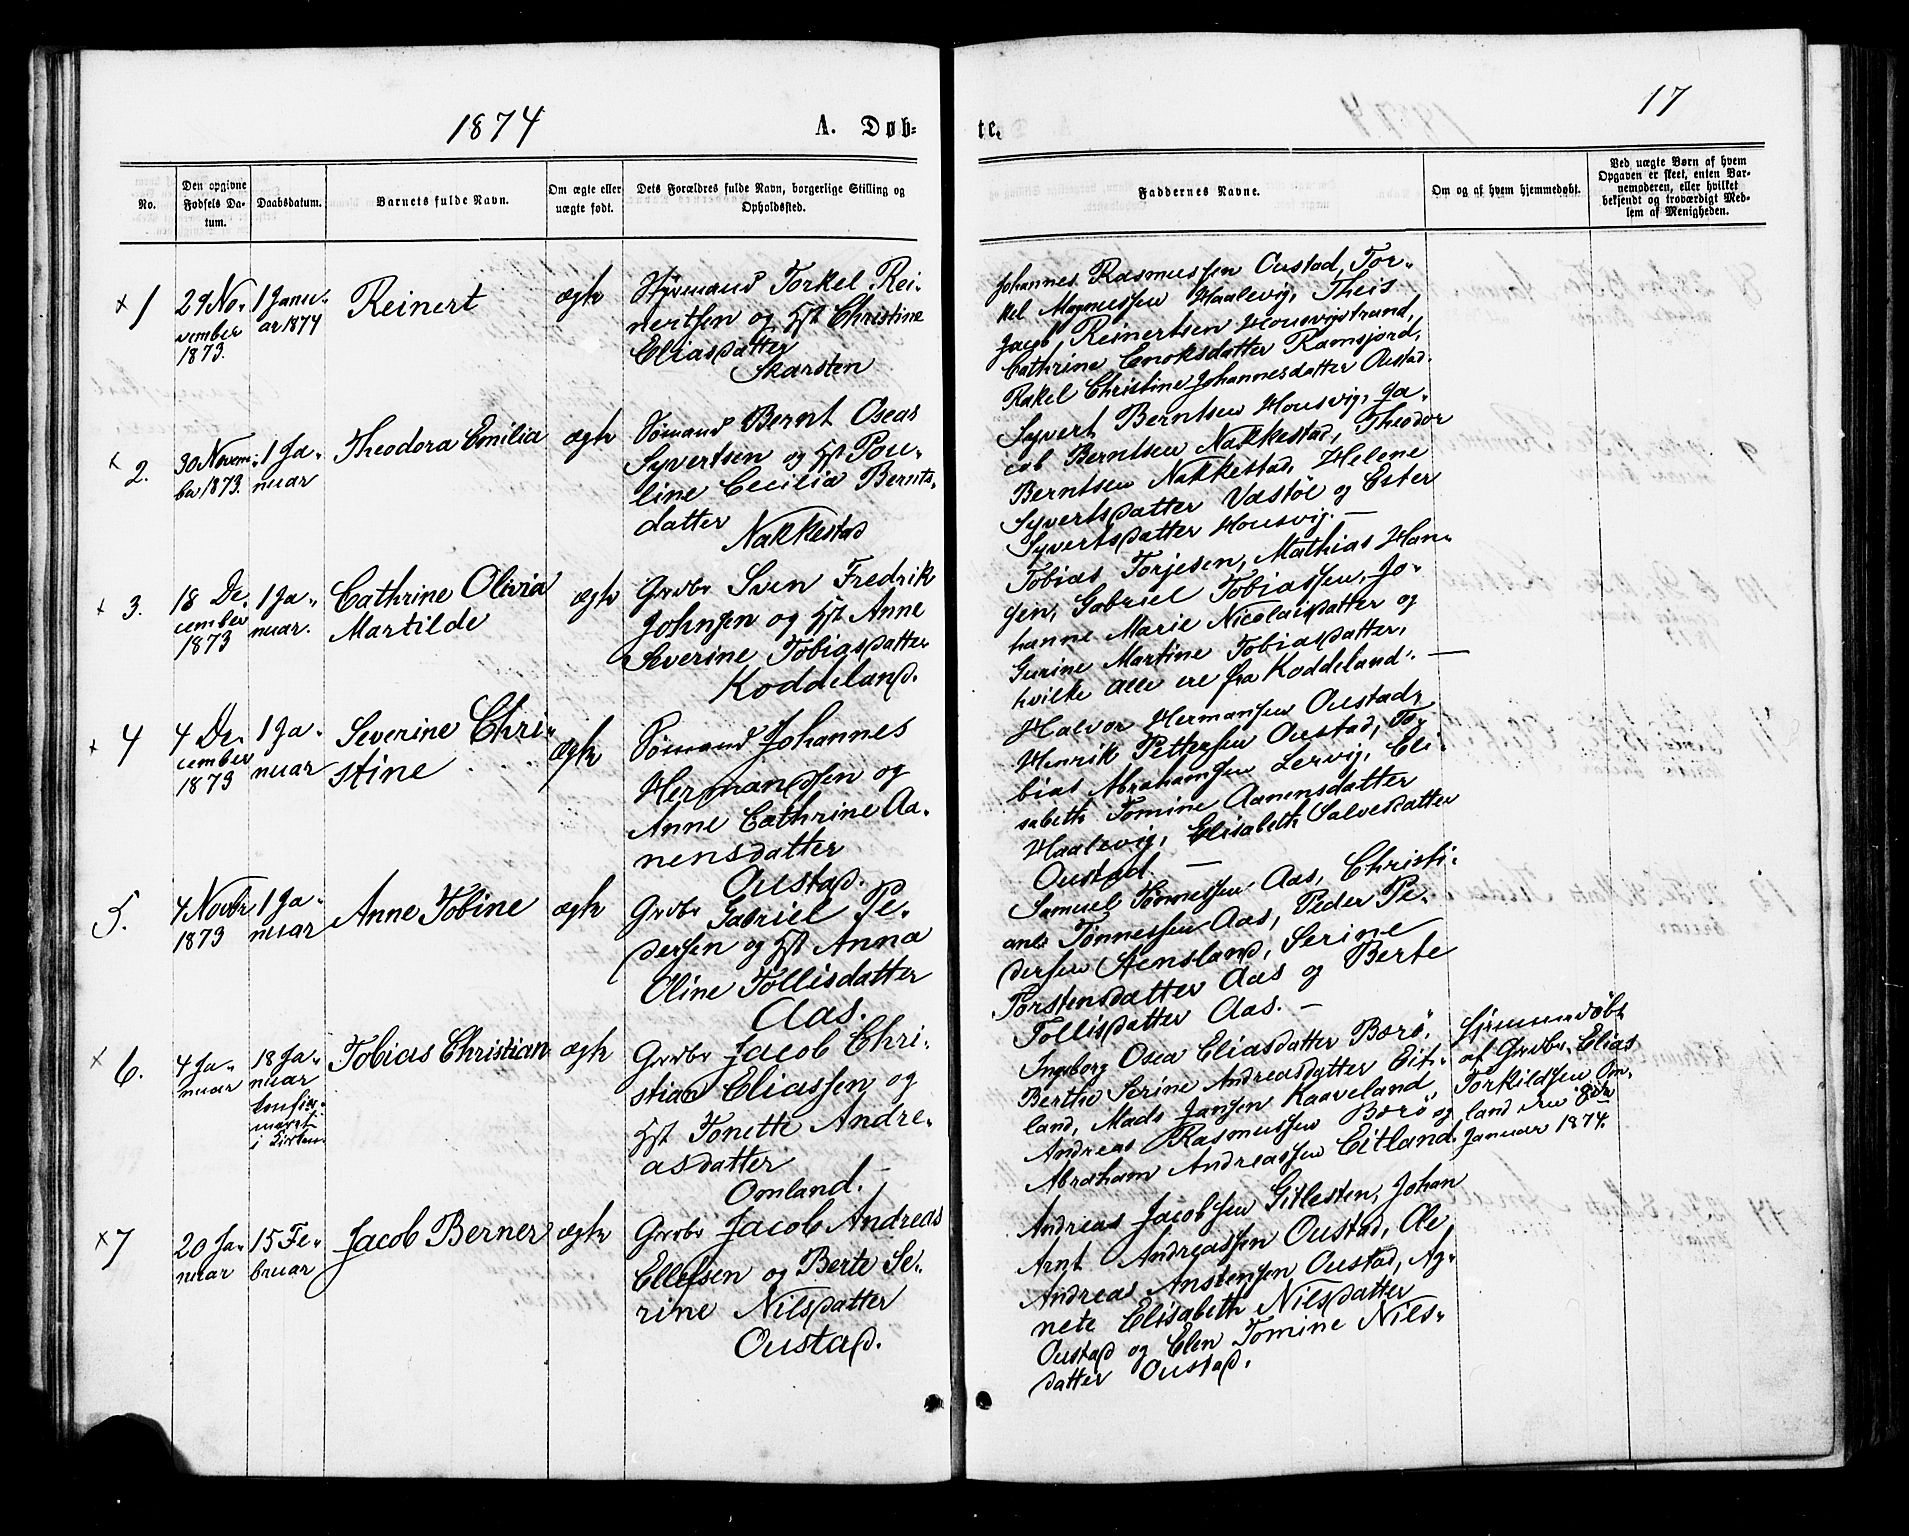 1874
A. Døb-
te.
17
No.
Den opgivne
Fødsels Da-
tum.
Daabsdatum.
Barnets fulde Navn.
Om ægte eller
uægte født.
Dets Forældres fulde Navn, borgerlige Stilling og
Opholdssted.
Faddernes Navne.
Om og af hvem hjemmedøbt.
Ved uægte Børn af hvem
Opgaven er skeet, enten Bar-
nemoderen, eller hvilket
bekjendt og troværdigt Med-
lem af Menigheden.
x 1
29 No-
vember
1873.
1 Janu-
ar 1874
Reinert
ægte
Styrmand Torkel Rei-
nertsen og Hst Christine
Eliasdatter
Skarsten
Johannes Rasmussen Oustad, Tor-
kel Magnussen Haalevig, Theis
Jacob Reinertsen Housvigstrand,
Cathrine Enoksdatter Ramsjord,
Rakel Christine Johannesdatter Oustad.
x 2.
30 Novem-
ber 1873.
1 Ja-
nuar
Theodora Emilia
ægte
Sømand Bernt Oscar
Syvertsen og Hst Pou-
line Cecilia Bernts-
datter
Nakkestad
Syvert Berntsen Housvig, Ja-
cob Berntsen Nakkestad, Theodor
Berntsen Nakkestad, Helene
Syvertsdatter Vastøl og Ester
Syvertsdatter Housvig. —
x 3.
18 De-
cember
1873
1 Ja-
nuar.
Cathrine Olivia
Martilde
ægte
Grdbr Sven Fredrik
Johnsen og Hst Anne
Severine Tobiasdatter
Koddeland.
Tobias Torjesen, Mathias Han-
sen, Gabriel Tobiassen, Jo-
hanne Marie Nicolaisdatter og
Gurine Martine Tobiasdatter,
hvilke alle ere fra Koddeland. —
x 4
4 De-
cember
1873
1 Ja-
nuar
Severine Chri-
stine
ægte
Sømand Johannes
Hermandsen og
Anne Cathrine Aa-
nensdatter
Oustad.
Halvor Hermansen Oustad,
Henrik Pettersen Oustad, To-
bias Abrahamsen Lervig, Eli-
sabeth Tomine Aanensdatter
Haalevig, Elisabeth Salvesdatter
Oustad. —
5.
4 Novbr
1873
1 Ja-
nuar
Anne Tobine
ægte
Grdbr Gabriel Pe-
dersen og Hst Anna
Oline Tollisdatter
Aas.
Samuel Tønnessen Aas, Christi-
an Tønnessen Aas, Peder Pe-
dersen Stensland, Serine
Torstensdatter Aas og Berte
Tollisdatter Aas. —
x 6.
4 Ja-
nuar
18 Ja-
nuar
konfir-
meret
i Kirken
Tobias Christian
ægte
Grdbr Jacob Chri-
stian Eliassen og
Hst Tonette Andre-
asdatter
Omland.
Ingeborg Osea Eliasdatter Borø,
Berthe Serine Andreasdatter Eit-
land, Mads Jansen Kaaveland
Andreas Rasmussen Borø og
Abraham Andreassen Eitland.
Hjemmedøbt
af Grdbr. Elias
Torkildsen Om-
land den 8de
Januar 1874.
x 7
20 Ja-
nuar
15 Fe-
bruar
Jacob Berner
ægte
Grdbr Jacob Andreas
Ellefsen og Berte Se-
rine Nilsdatter
Oustad.
Andreas Jacobsen Gitlesten, Johan
Arnt Andreassen Oustad, Ole
Andreas Anstensen Oustad, Ag-
nete Elisabeth Nilsdatter
Oustad og Elen Tomine Nils-
datter Oustad.